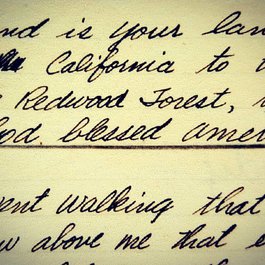 nd is your lan
California to
Redwood Forest,
od blessed amer
ent walking that
w above me that e